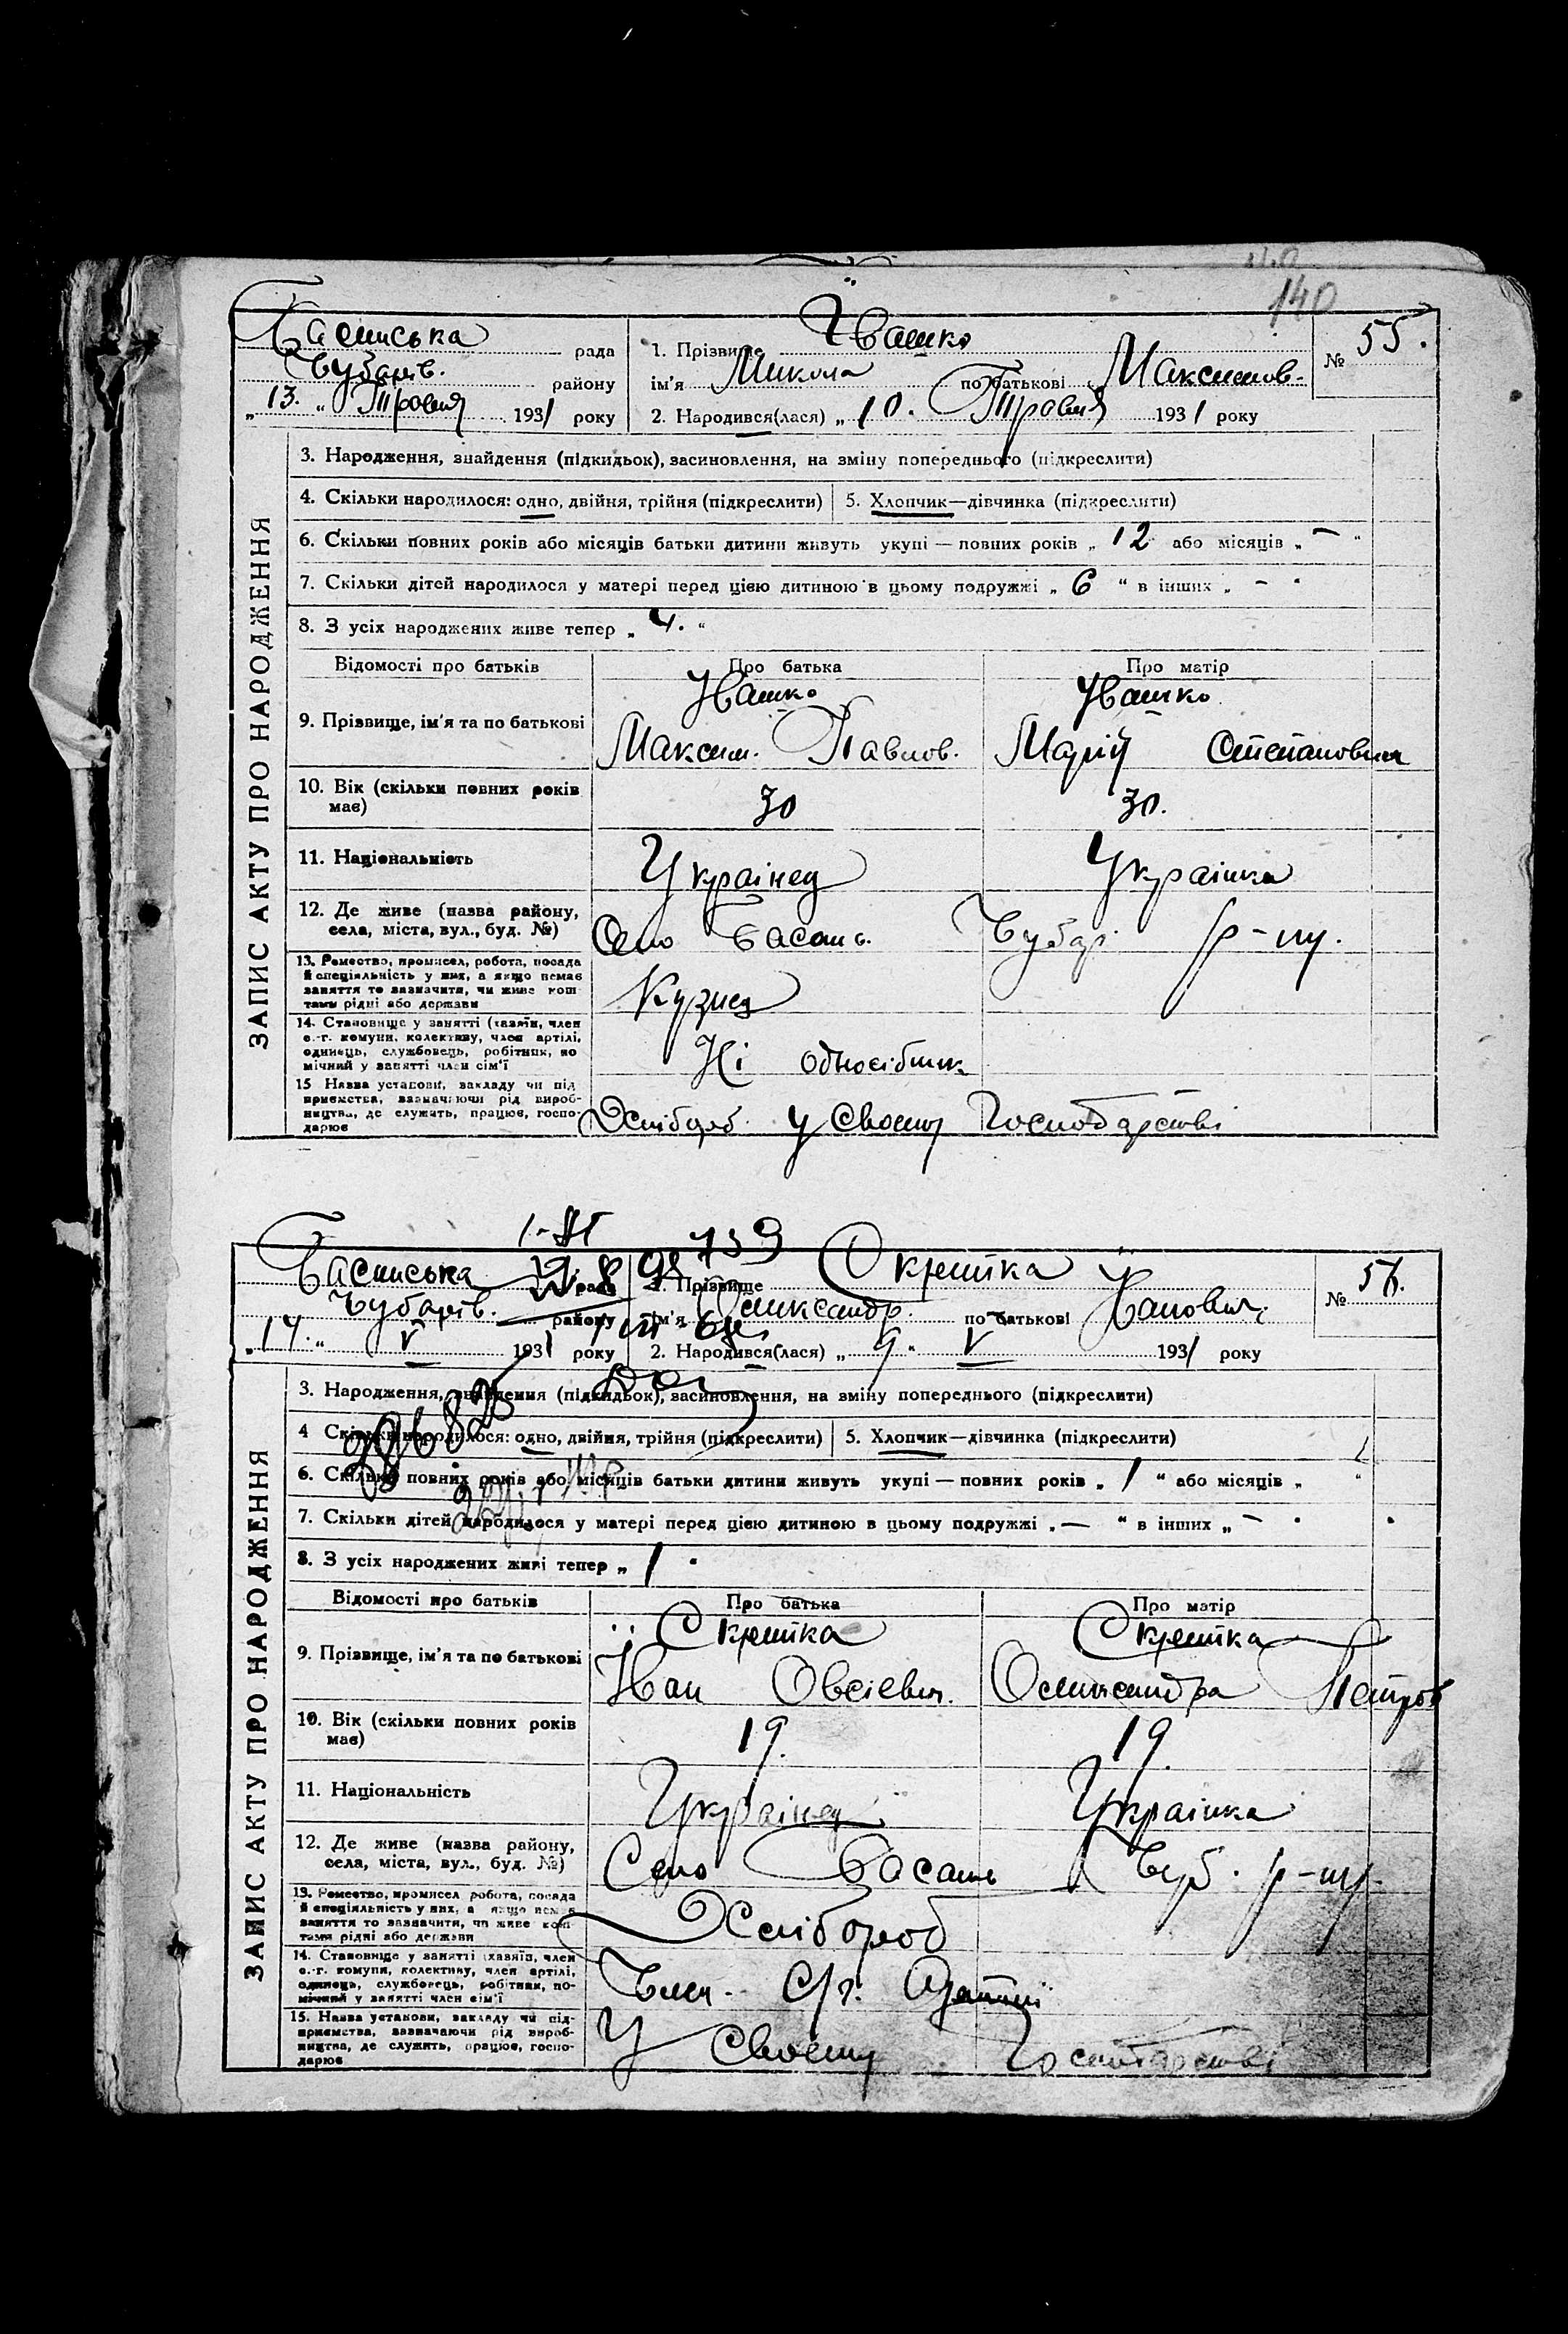 140
Басанська рада
Чубарів. району
„13.“ Травня 1931 року
1. Прізвище Івашко
ім'я Микола по батькові Максимов.
№ 55.
2. Народився(лася) „10. Травня 1931 року
ЗАПИС АКТУ ПРО НАРОДЖЕННЯ
3. Народження, знайдення (підкидьок), засиновлення, на зміну попереднього (підкреслити)
4. Скільки народилося: одно, двійня, трійня (підкреслити) 5. Хлопчик—дівчинка (підкреслити)
6. Скільки повних років або місяців батьки дитини живуть укупі — повних років „ 12 або місяців „ — “
7. Скільки дітей народилося у матері перед цією дитиною в цьому подружжі „ 6 “ в інших „ — “
8. З усіх народжених живе тепер „ 4. “
Відомості про батьків Про батька Про матір
Івашко Івашко
9. Прізвище, ім'я та по батькові Максим. Павлов. Марія Степановна
10. Вік (скільки повних років має) 30 30.
11. Національність Українец Українка
12. Де живе (назва району, села, міста, вул., буд. №) Село Басань Чубар р-ну.
13. Ремество, промисел, робота, посада й спеціяльність у них, а якщо немає заняття то зазначити, чи живе коштами рідні або держави Кузнец
14. Становище у занятті (хазяїн, член с.-г. комуни, колективу, член артілі, одинець, службовець, робітник, помічний у занятті член сім'ї Ні
15 Назва установи, закладу чи підприємства, зазначаючи рід виробництва, де служить, працює, господарює Хлібороб. у Своему Господарстві
739
Басанська рада
Чубарів. району
„14.“ V 1931 року
1. Прізвище Скрипка
ім'я Олександр. по батькові Іванович.
№ 56.
2. Народився(лася) „ 9. “ V 1931 року
ЗАПИС АКТУ ПРО НАРОДЖЕННЯ
3. Народження, знайдення (підкидьок), засиновлення, на зміну попереднього (підкреслити)
4 Скільки народилося: одно, двійня, трійня (підкреслити) 5. Хлопчик—дівчинка (підкреслити)
6. Скільки повних років або місяців батьки дитини живуть укупі — повних років „ 1 “ або місяців „ “
7. Скільки дітей народилося у матері перед цією дитиною в цьому подружжі „ — “ в інших „ — “
8. З усіх народжених живі тепер „ 1 “
Відомості про батьків Про батька Про матір
Скрипка Скрипка
9. Прізвище, ім'я та по батькові Іван Овсієвич. Олександра Петров
10. Вік (скільки повних років має) 19. 19.
11. Національність Українец Українка
12. Де живе (назва району, села, міста, вул., буд. №) Село Басань Чуб. р-ну.
13. Ремество, промисел робота, посада й спеціяльність у них, а якщо немає заняття то зазначити, чи живе коштами рідні або держави Хлібороб
14. Становище у занятті (хазяїн, член с.-г. комуни, колективу, член артілі, одинець, службовець, робітник, помічний у занятті член сім'ї Член. С/г. Артілі
15. Назва установи, закладу чи підприємства, зазначаючи рід виробництва, де служить, працює, господарює У Своему Господарстві